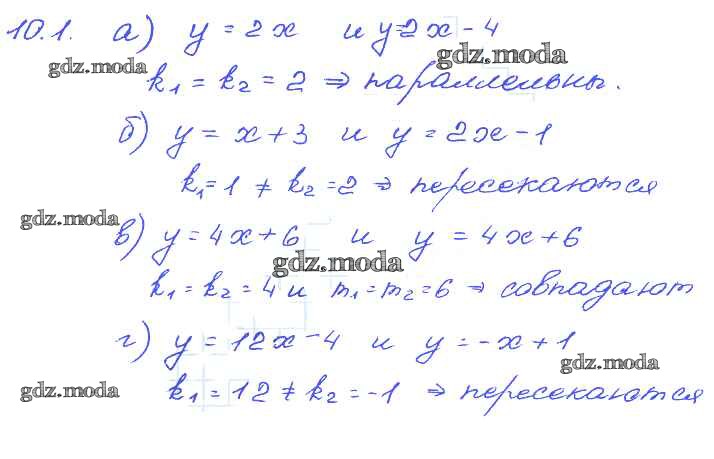 10.1. а) y = 2x и y=2x-4
gdz.moda
gdz.moda
k₁ = k₂ = 2 ⇒ параллельны.
б) y = x+3 и y = 2x-1
k₁=1 ≠ k₂=2 ⇒ пересекаются
gdz.moda
в) y=4x+6 и y = 4x+6
gdz.moda
k₁ = k₂ = 4 и m₁=m₂=6 ⇒ совпадают
г) y = 12x-4 и y=-x+1
gdz.moda
gdz.moda
k₁=12≠k₂=-1 ⇒ пересекаются